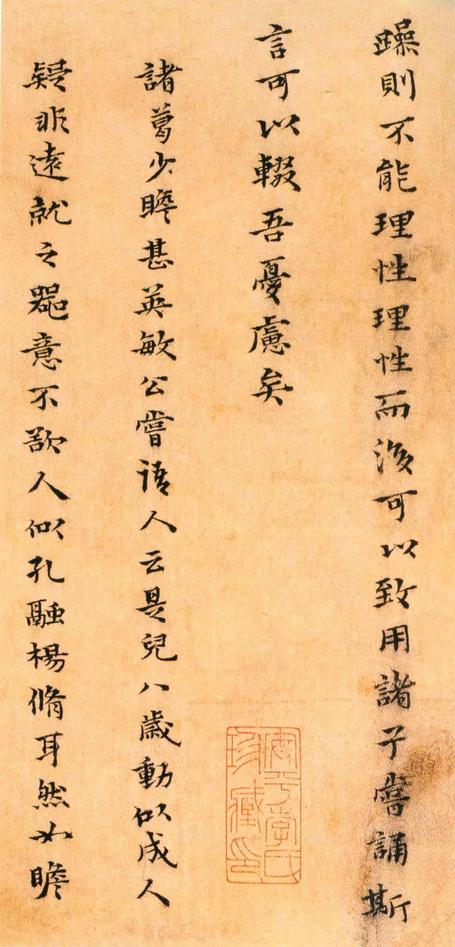 躁則不能理性理性而後可以致用諸子嘗誦斯
言可以輟吾憂慮矣
諸葛少瞻甚英敏公嘗語人云是兒八歲動似成人
疑非遠就之器意不欲人似孔融楊脩耳然如瞻
安平李氏
珍藏印